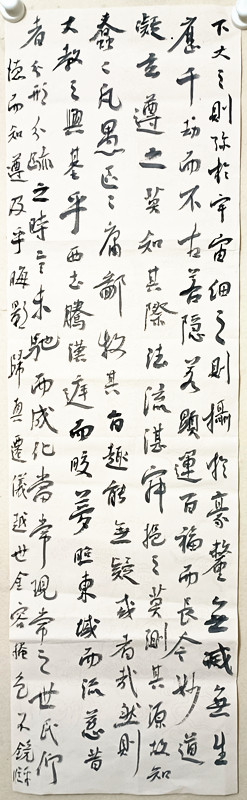 下大之則弥於宇宙細之則攝於豪釐無滅無生
歷千劫而不古若隱若顯運百福而長今妙道
凝玄遵之莫知其際法流湛寂挹之莫測其源故知
蠢々凡愚區々庸鄙投其旨趣能無疑或者哉然則
大教之興基乎西土騰漢庭而皎夢照東域而流慈昔
者分形分跡之時言未馳而成化當常現常之世民仰
德而知遵及乎晦影歸真遷儀越世金容掩色不鏡